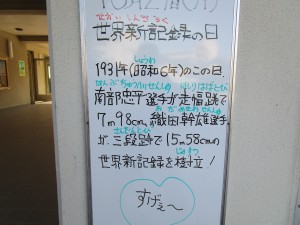 10月27日(火)
せかい しんき ろく
世界新記録の日
しょうわ
1931年(昭和6年)のこの日、
なんぶちゅうへいせんしゅ はしりはばとび
南部忠平選手が走幅跳で
おだみきおせんしゅ
7m98cm、織田幹雄選手
さんだんとび
が三段跳で15m58cmの
じゅりつ
世界新記録を樹立!
すげぇ〜